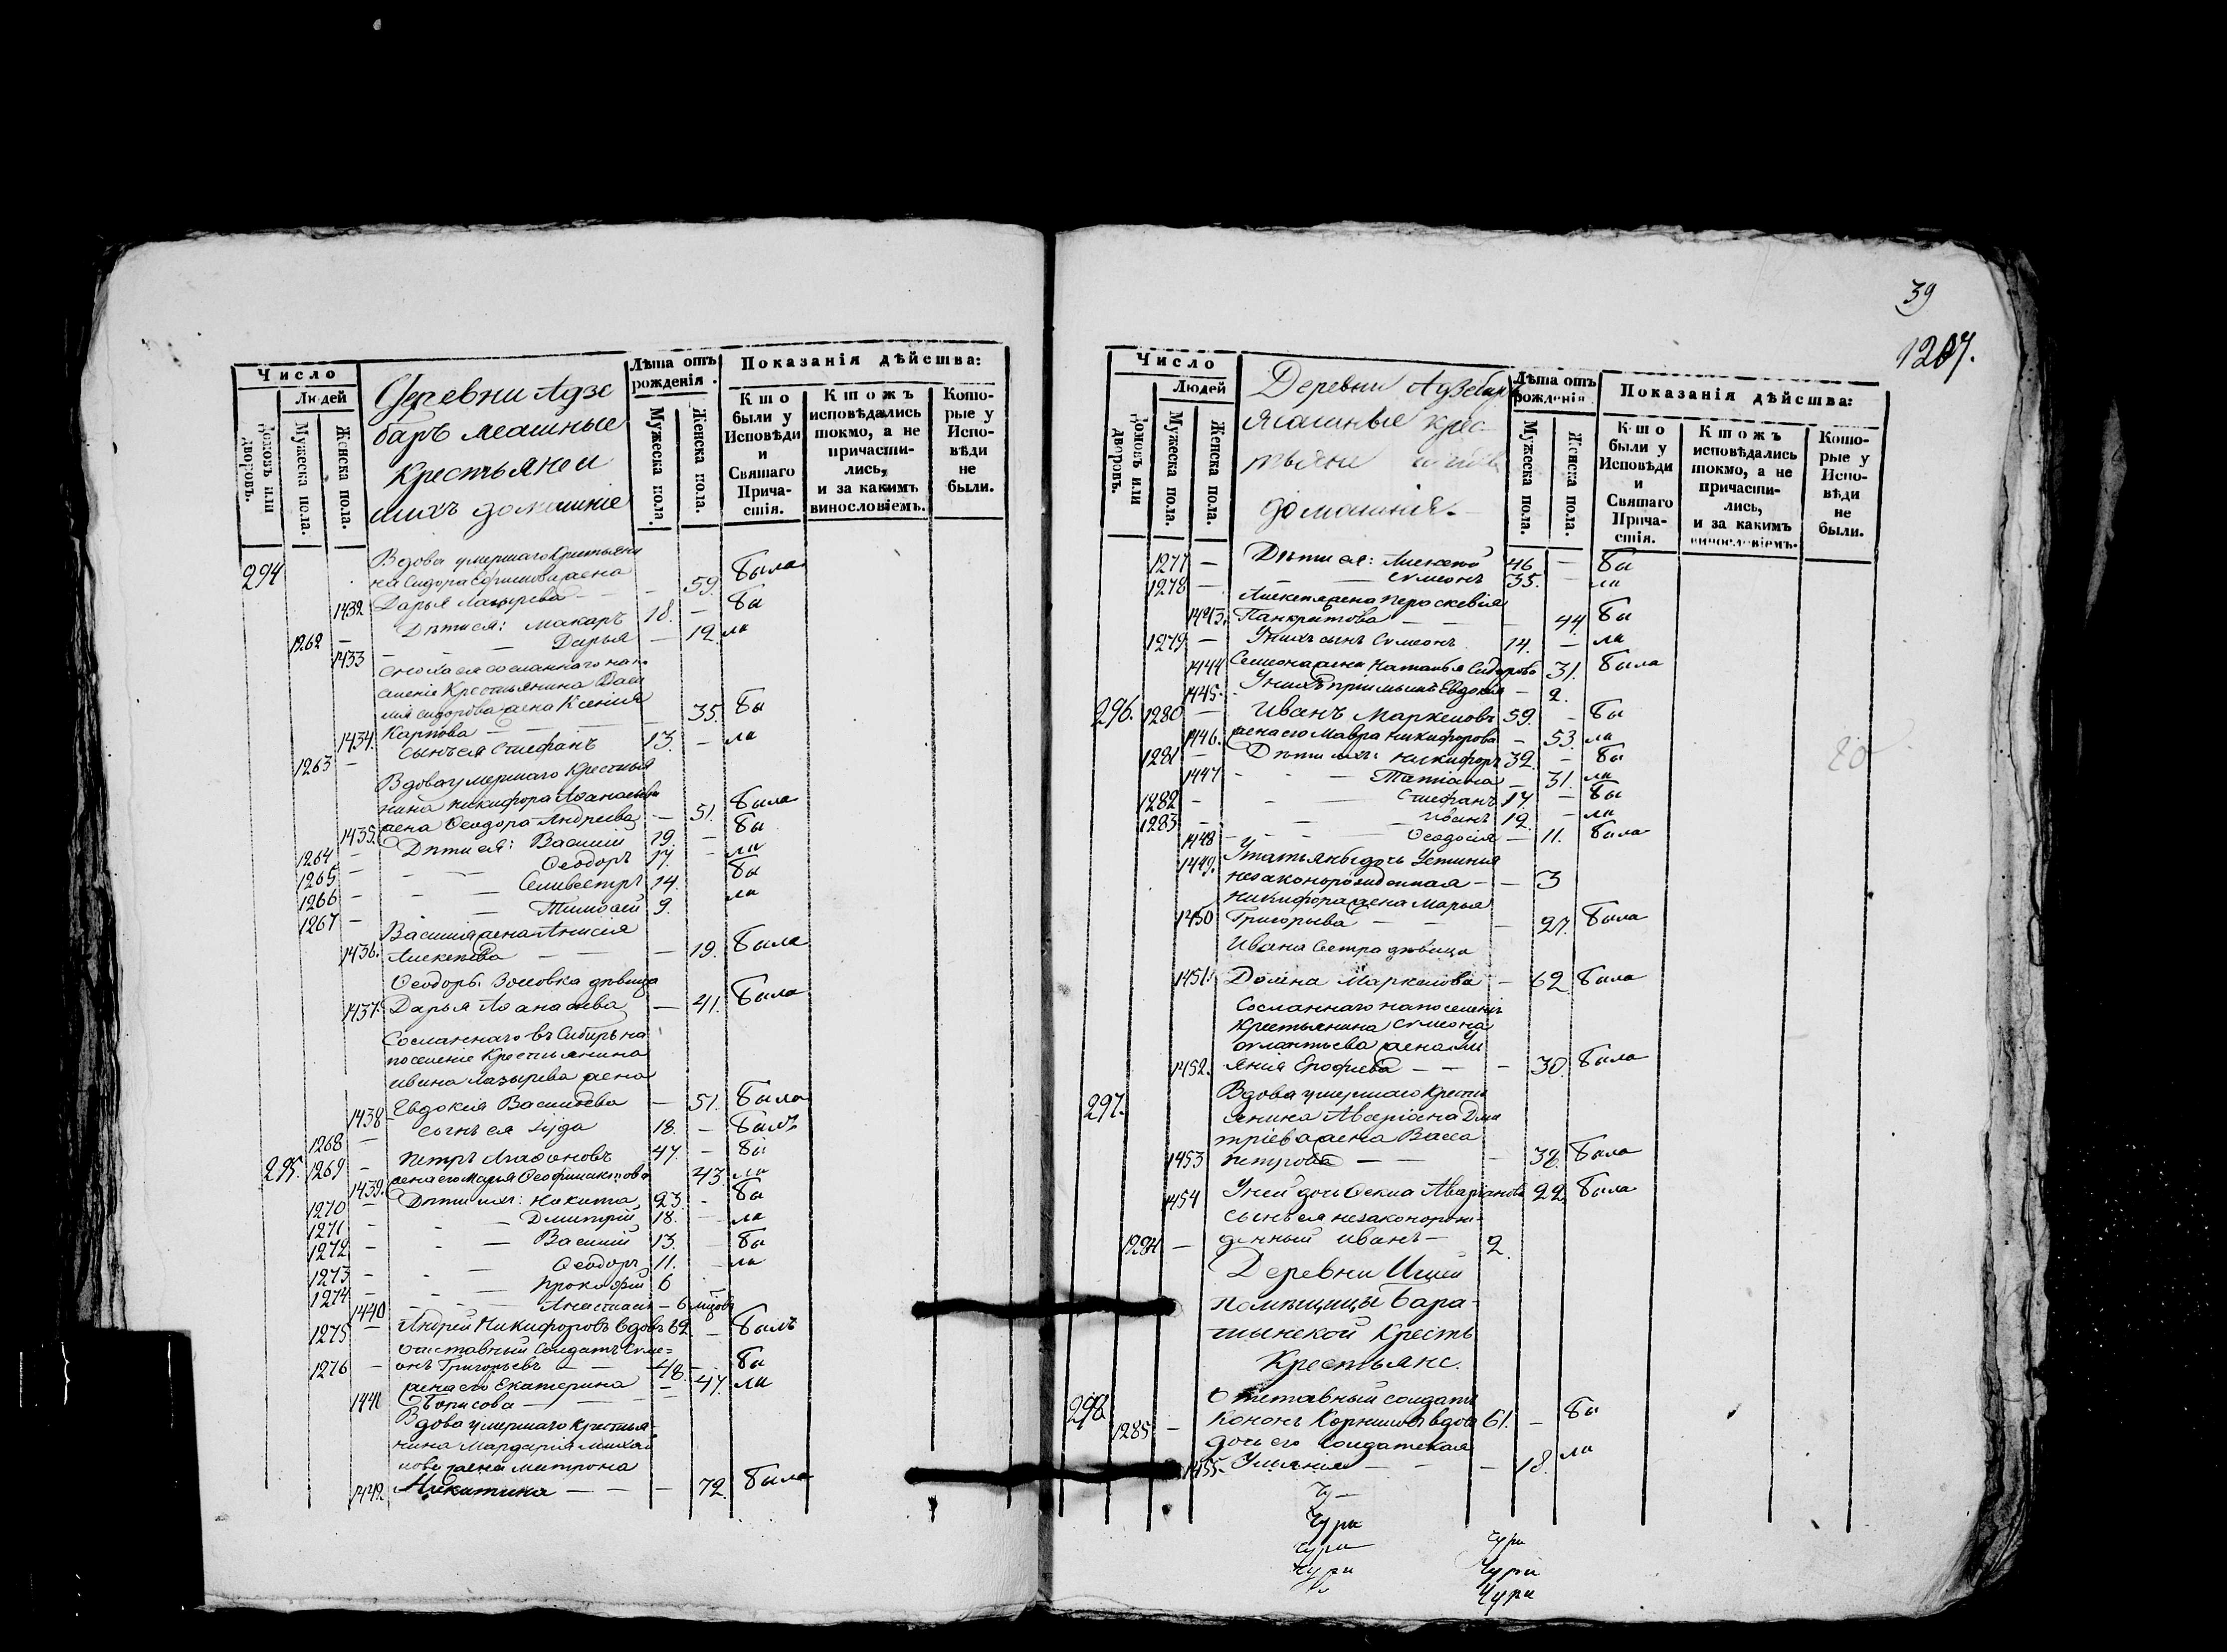 Число
Людей
Домовъ или дворовъ.
Мужеска пола.
Женска пола.
Деревни Адзе
баръ Ясашные
Крестьяне и
ихъ домашніе
Лѣта отъ рожденія.
Мужеска пола.
Женска пола.
Показанія дѣйства:
Кто были у Исповѣди и Святаго Причастія.
Ктожъ исповѣдались токмо, а не причастились, и за какимъ винословіемъ.
Которые у Исповѣди не были.
294 Вдова умершаго Крестьяни
на Сидора Ефимова жена
1432 Дарья Лазырева — — 59. была
1262 — Дѣти ея: Макаръ 18. — бы
1433 — Дарья — 12 ли
Сноха ея сосланнаго на по
селеніе Крестьянина Васи
лія Сидорова жена Ксенія
1434. Карпова — — 35. бы
1263 — сынъ ея Стефанъ 13. — ли
Вдова умершаго Крестья
нина Никифора Аѳанасьева
1435. жена Ѳеодора Андреева — 51. была
1264 — Дѣти ея: Василій 19. — бы
1265 — Ѳеодоръ 17. — ли
1266 — Селивестръ 14. бы
1267 — Тимоѳей 9. ли
Василія жена Анисія
1436. Алексѣева — — 19. была
Ѳеодоры Золовка дѣвица
1437. Дарья Аѳанасьева — 41. была
Сосланнаго въ Сибирь на
поселеніе Крестьянина
Ивана Лазырева жена
1438 Евдокія Васильева — 51. была
1268 — сынъ ея Іуда 18. — былъ
295. 1269 — Петръ Агаѳоновъ 47. — бы
1439. жена его Марья 43. ли
1270 — Дѣти ихъ: Никита 23. — бы
1271 — Дмитрій 18. — ли
1272 — Василій 13. — бы
1273 — Ѳеодоръ 11. — ли
1274 — Прокофій 6 —
1440 — Анастасія — 6 мѣсяцовъ
1275 — Андрей Никифоровъ вдовъ 62 — былъ
отставный Солдатъ Симе=
1276 — онъ Григорьевъ — — 48. — бы
жена его Екатерина — 47. ли
1441 Борисова —
Вдова умершаго Крестья-
нина Мардарія Михай
лова жена Матрона
1442 Никитина — — — 72. была
39
1207.
Число
Людей
Домовъ или дворовъ.
Мужеска пола.
Женска пола.
Деревни Адзебаръ
Ясашные крес-
тьяне и ихъ
домашнія.
Лѣта отъ рожденія.
Мужеска пола.
Женска пола.
Показанія дѣйства:
Кто были у Исповѣди и Святаго Причастія.
Ктожъ исповѣдались токмо, а не причастились, и за какимъ винословіемъ.
Которые у Исповѣди не были.
1277 — Дѣти ея: Алексѣй 46 — бы
1278 — Симеонъ 35. — ли
Алексѣя жена Параскевія
1443. Панкратова — — 44. бы
1279 — У нихъ сынъ Симеонъ 14. — ли
1444 Симеона жена Наталья Сидорова 31. была
1445. У нихъ пріимышъ Евдокія — 2.
296. 1280 — Иванъ Маркеловъ 59. — бы
1446. жена его Мавра Никифорова — 53. ли
1281 — Дѣти ихъ: Никифоръ 32. — бы
1447 — Татіана — 31. ли
1282 — Стефанъ 17. — бы
1283 — Иванъ 12. — ли
1448 — Ѳеодосія — 11. была
1449. У Татьяны дочь Устинія
незаконорожденная — — 3
Никифора жена Марья
1450 Григорьева — — 27. была
Ивана Сестра дѣвица
1451. Домна Маркелова — 62 была
Сосланнаго на поселеніе
Крестьянина Симеона
жена Ули
1452. янія Ерофѣева — — — 30. была
297. Вдова умершаго Кресть
янина Аверіана Дми
тріева жена Васса
1453 Петрова — — — 38. была
1454 У ней дочь Аверіанова 22. была
сынъ ея незаконорож-
1284 — денный Иванъ — 2.
20
Деревни
помѣщицы Бара-
тынской Кресть
Крестьяне.
298 Отставный солдатъ
1285 — Кононъ Корниловъ вдовъ 61. — бы
дочь его Солдатская
1455. Ульянія — — — 18. ли
Чу —
Чури
Чури
Чури
Чури
Чури
Чури